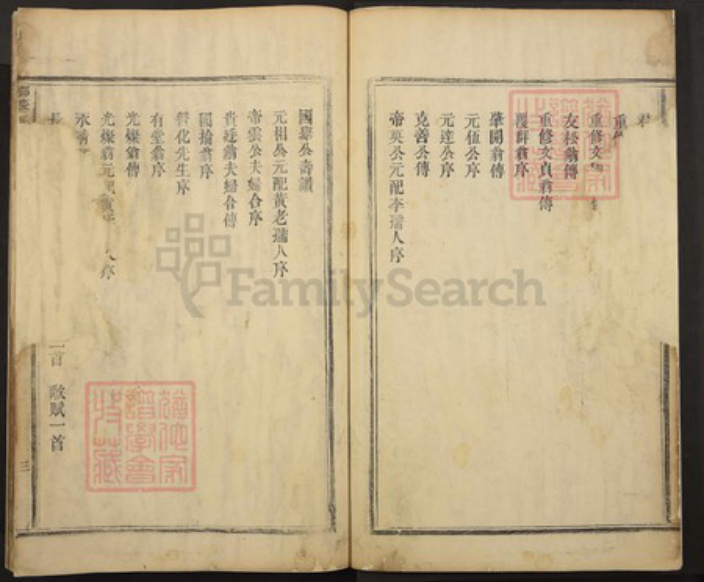 重修文
友松翁傳
重修文貞翁傳
覲群翁序
肇開翁傳
元伍公序
元達公序
克善公傳
帝英公元配李孺人序
國肇公壽讚
元相公元配黃老孺人序
帝雲公夫婦合序
貴廷翁夫婦合傳
國掄翁序
贊化先生序
有堂翁序
光燦翁傳
光燦翁元
人序
一首 歌賦一首
三
FamilySearch